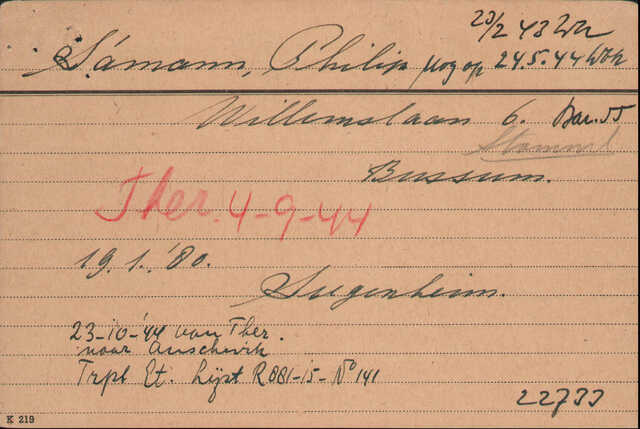 23/2 43 Wbk
Sámann, Philip nog op 24.5.44 Wbk
Willemslaan 6. Bar. 55
Bussum.
Ther. 4-9-44
19.1.'80.
Sugenheim.
23-10-'44 van Ther.
naar Auschwitz
Trpt Et. Lijst R881-15-No 141
22733
K 219